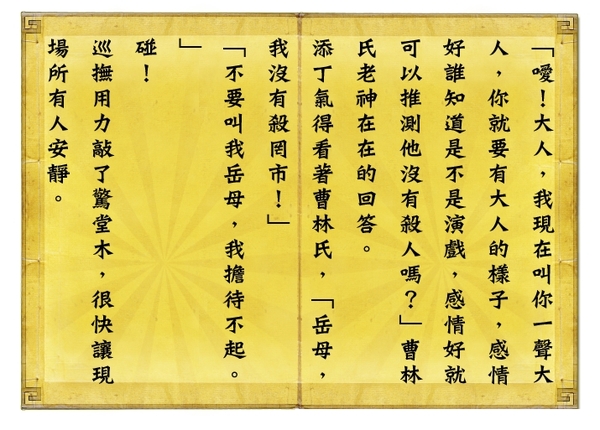 「噯！大人，我現在叫你一聲大
人，你就要有大人的樣子，感情
好誰知道是不是演戲，感情好就
可以推測他沒有殺人嗎？」曹林
氏老神在在的回答。
添丁氣得看著曹林氏，「岳母，
我沒有殺罔市！」
「不要叫我岳母，我擔待不起。
」
碰！
巡撫用力敲了驚堂木，很快讓現
場所有人安靜。